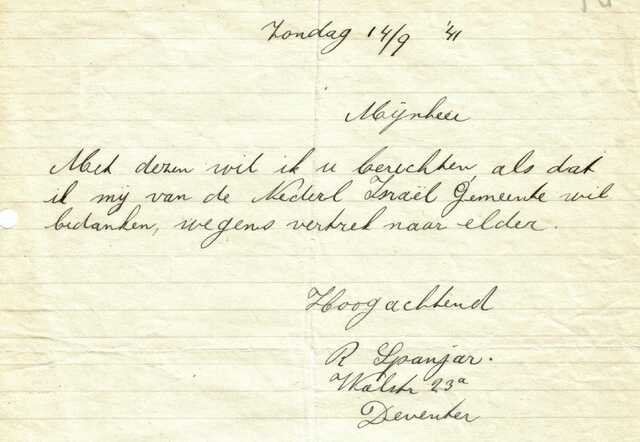 Zondag 14/9 '41
Mijnheer
Met dezen wil ik u berechten, als dat
ik mij van de Nederl Israël Gemeente wil
bedanken, wegens vertrek naar elder.
Hoogachtend
R Spanjar.
Walstr 23a
Deventer